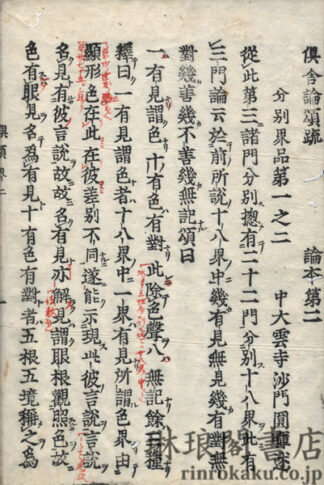 俱舍論頌疏　論本第二
分別界品第一之二　中大雲寺沙門圓暉述
從此第三諸門分別總有二十二門分別十八界此有
三門論云於前所說十八界中幾有見幾無見幾有對幾無
對幾善幾不善幾無記頌曰
一有見謂色　十有色有對　此除色聲八　無記餘三種
釋曰一有見謂色者十八界中一界有見所謂色界由
顯形色在此在彼差別不同遂能示現此彼言說言說
名見有彼言說故故名有見亦解見謂眼根觀照色故
色有眼見名為有見十有色有對者五根五境稱之為
林琅閣書店
rinrokaku.co.jp